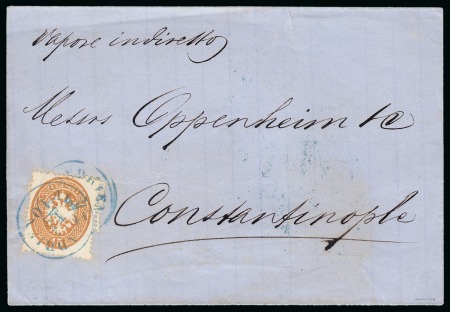 Vapore indiretto
Messrs Oppenheim & C
Constantinople